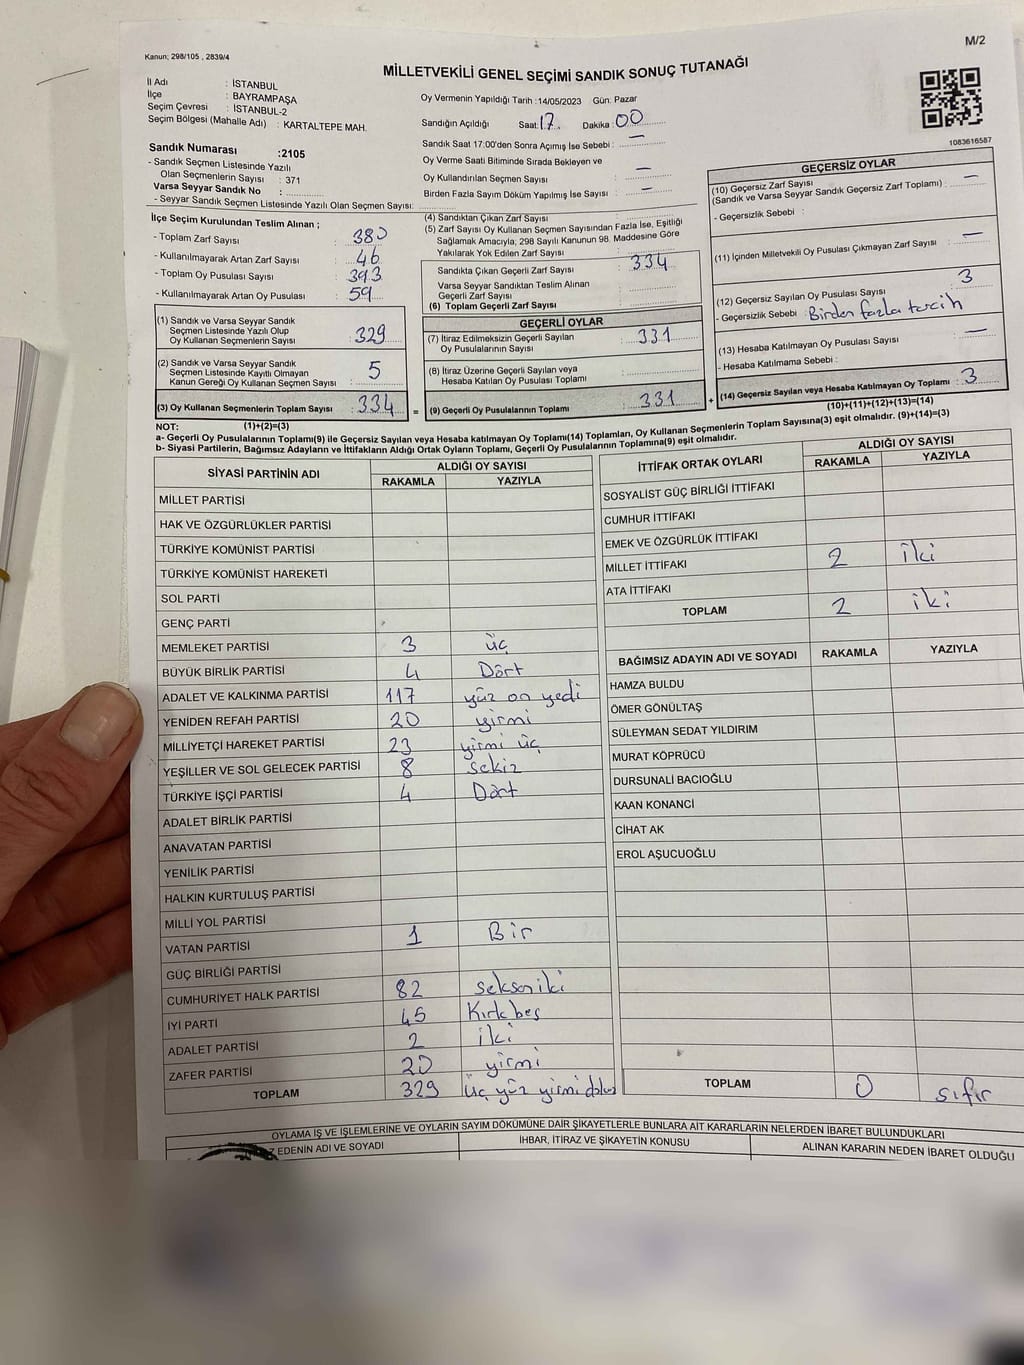 M/2
Kanun; 298/105 , 2839/4
MİLLETVEKİLİ GENEL SEÇİMİ SANDIK SONUÇ TUTANAĞI
İl Adı : İSTANBUL
İlçe : BAYRAMPAŞA
Seçim Çevresi : İSTANBUL-2
Seçim Bölgesi (Mahalle Adı) : KARTALTEPE MAH.
Sandık Numarası :2105
- Sandık Seçmen Listesinde Yazılı
Olan Seçmenlerin Sayısı : 371
Varsa Seyyar Sandık No :
- Seyyar Sandık Seçmen Listesinde Yazılı Olan Seçmen Sayısı:
Oy Vermenin Yapıldığı Tarih :14/05/2023 Gün: Pazar
Sandığın Açıldığı Saat: 17 Dakika : 00
Sandık Saat 17.00'den Sonra Açımış İse Sebebi : —
Oy Verme Saati Bitiminde Sırada Bekleyen ve
Oy Kullandırılan Seçmen Sayısı : —
Birden Fazla Sayım Döküm Yapılmış İse Sayısı : —
1083616587
İlçe Seçim Kurulundan Teslim Alınan ;
- Toplam Zarf Sayısı : 380
- Kullanılmayarak Artan Zarf Sayısı : 46
- Toplam Oy Pusulası Sayısı : 393
- Kullanılmayarak Artan Oy Pusulası : 59
(1) Sandık ve Varsa Seyyar Sandık
Seçmen Listesinde Yazılı Olup
Oy Kullanan Seçmenlerin Sayısı : 329
(2) Sandık ve Varsa Seyyar Sandık
Seçmen Listesinde Kayıtlı Olmayan
Kanun Gereği Oy Kullanan Seçmen Sayısı : 5
(3) Oy Kullanan Seçmenlerin Toplam Sayısı : 334 =
(4) Sandıktan Çıkan Zarf Sayısı :
(5) Zarf Sayısı Oy Kullanan Seçmen Sayısından Fazla İse, Eşitliği
Sağlamak Amacıyla, 298 Sayılı Kanunun 98. Maddesine Göre
Yakılarak Yok Edilen Zarf Sayısı :
Sandıkta Çıkan Geçerli Zarf Sayısı : 334
Varsa Seyyar Sandıktan Teslim Alınan
Geçerli Zarf Sayısı :
(6) Toplam Geçerli Zarf Sayısı :
GEÇERLİ OYLAR
(7) İtiraz Edilmeksizin Geçerli Sayılan
Oy Pusulalarının Sayısı : 331
(8) İtiraz Üzerine Geçerli Sayılan veya
Hesaba Katılan Oy Pusulası Toplamı :
(9) Geçerli Oy Pusulalarının Toplamı : 331 +
GEÇERSİZ OYLAR
(10) Geçersiz Zarf Sayısı
(Sandık ve Varsa Seyyar Sandık Geçersiz Zarf Toplamı) : —
- Geçersizlik Sebebi :
(11) İçinden Milletvekili Oy Pusulası Çıkmayan Zarf Sayısı : —
(12) Geçersiz Sayılan Oy Pusulası Sayısı : 3
- Geçersizlik Sebebi : Birden fazla tercih
(13) Hesaba Katılmayan Oy Pusulası Sayısı : —
- Hesaba Katılmama Sebebi :
(14) Geçersiz Sayılan veya Hesaba Katılmayan Oy Toplamı : 3
(10)+(11)+(12)+(13)=(14)
NOT: (1)+(2)=(3)
a- Geçerli Oy Pusulalarının Toplamı(9) ile Geçersiz Sayılan veya Hesaba katılmayan Oy Toplamı(14) Toplamları, Oy Kullanan Seçmenlerin Toplam Sayısına(3) eşit olmalıdır. (9)+(14)=(3)
b- Siyasi Partilerin, Bağımsız Adayların ve İttifakların Aldığı Ortak Oyların Toplamı, Geçerli Oy Pusulalarının Toplamına(9) eşit olmalıdır.
SİYASİ PARTİNİN ADI ALDIĞI OY SAYISI
RAKAMLA YAZIYLA
MİLLET PARTİSİ
HAK VE ÖZGÜRLÜKLER PARTİSİ
TÜRKİYE KOMÜNİST PARTİSİ
TÜRKİYE KOMÜNİST HAREKETİ
SOL PARTİ
GENÇ PARTİ
MEMLEKET PARTİSİ 3 üç
BÜYÜK BİRLİK PARTİSİ 4 Dört
ADALET VE KALKINMA PARTİSİ 117 yüz on yedi
YENİDEN REFAH PARTİSİ 20 yirmi
MİLLİYETÇİ HAREKET PARTİSİ 23 yirmi üç
YEŞİLLER VE SOL GELECEK PARTİSİ 8 sekiz
TÜRKİYE İŞÇİ PARTİSİ 4 Dört
ADALET BİRLİK PARTİSİ
ANAVATAN PARTİSİ
YENİLİK PARTİSİ
HALKIN KURTULUŞ PARTİSİ
MİLLİ YOL PARTİSİ
VATAN PARTİSİ 1 Bir
GÜÇ BİRLİĞİ PARTİSİ
CUMHURİYET HALK PARTİSİ 82 seksen iki
İYİ PARTİ 45 Kırk beş
ADALET PARTİSİ 2 iki
ZAFER PARTİSİ 20 yirmi
TOPLAM 329 üç yüz yirmi dokuz
İTTİFAK ORTAK OYLARI ALDIĞI OY SAYISI
RAKAMLA YAZIYLA
SOSYALİST GÜÇ BİRLİĞİ İTTİFAKI
CUMHUR İTTİFAKI
EMEK VE ÖZGÜRLÜK İTTİFAKI
MİLLET İTTİFAKI 2 iki
ATA İTTİFAKI
TOPLAM 2 iki
BAĞIMSIZ ADAYIN ADI VE SOYADI RAKAMLA YAZIYLA
HAMZA BULDU
ÖMER GÖNÜLTAŞ
SÜLEYMAN SEDAT YILDIRIM
MURAT KÖPRÜCÜ
DURSUNALİ BACIOĞLU
KAAN KONANCİ
CİHAT AK
EROL AŞUCUOĞLU
TOPLAM 0 sıfır
OYLAMA İŞ VE İŞLEMLERİNE VE OYLARIN SAYIM DÖKÜMÜNE DAİR ŞİKAYETLERLE BUNLARA AİT KARARLARIN NELERDEN İBARET BULUNDUKLARI
EDENİN ADI VE SOYADI İHBAR, İTİRAZ VE ŞİKAYETİN KONUSU ALINAN KARARIN NEDEN İBARET OLDUĞU